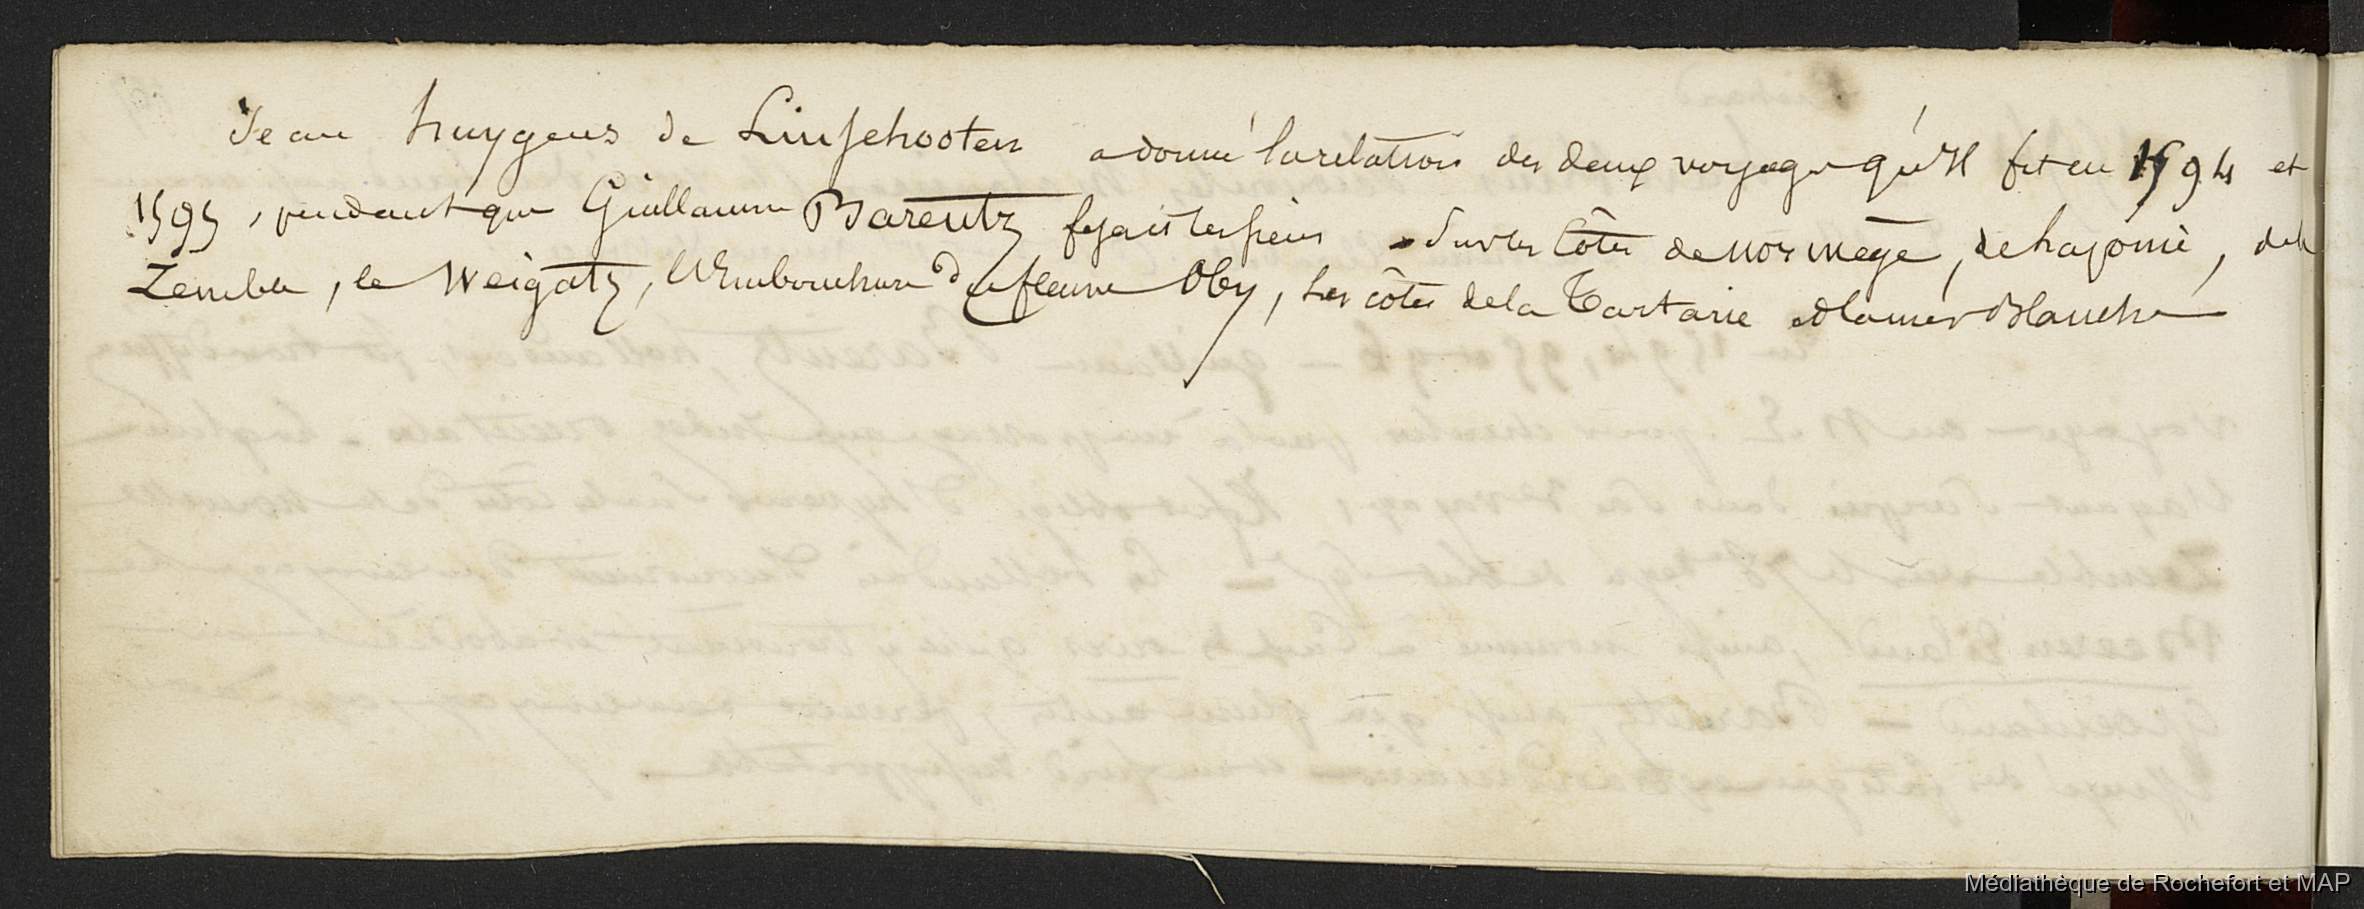 Jean huygens de Linschooten a donné la relation des deux voyages qu'il fit en 1594 et
1595, pendant que Guillaume Barentz fesait les siens sur les Côtes de norwege, de laponie, de la
Zemble, le Weigatz, l'Embouchure du fleuve Oby, les côtes de la Tartarie et la mer Blanche
Médiathèque de Rochefort et MAP